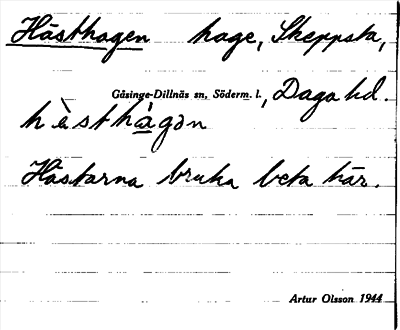 Hästhagen hage, Skeppsta,
Gåsinge-Dillnäs sn, Söderm. l., Daga hd.
hàsthágon
Hästarna bruka beta här.
Artur Olsson 1944